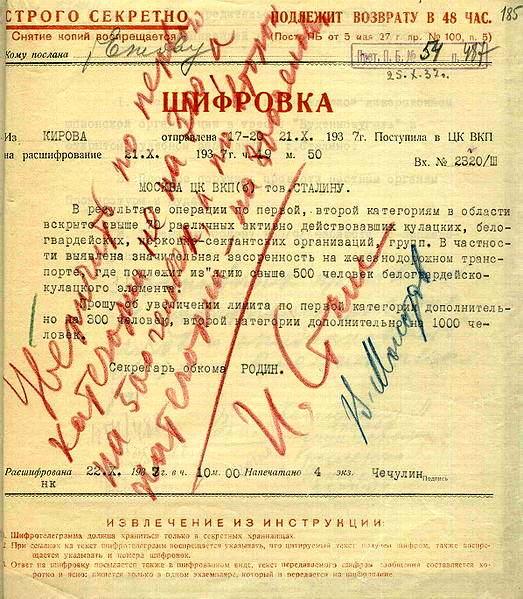 СТРОГО СЕКРЕТНО
Снятие копий воспрещается
ПОДЛЕЖИТ ВОЗВРАТУ В 48 ЧАС.
(Пост. ПБ от 5 мая 27 г. пр. № 100, п. 5)
185
Кому послана т. Ежову
Прот. П. Б. № 54 п. 487
25.X.37г.
ШИФРОВКА
Из КИРОВА отправлена 17-20 21.X. 1937г. Поступила в ЦК ВКП
на расшифрование 21.X. 1937г. ч. 19 м. 50
Вх. № 2320/Ш
МОСКВА ЦК ВКП(б) тов. СТАЛИНУ.
В результате операции по первой, второй категориям в области
вскрыто свыше различных активно действовавших кулацких, бело-
гвардейских, церковно-сектантских организаций, групп. В частнос-
ти выявлена значительная засоренность на железнодорожном транс-
порте, где подлежит из"ятию свыше 500 человек белогвардейско-
кулацкого элемента.
Прошу об увеличении лимита по первой категории дополнитель-
но на 300 человек, второй категории дополнительно на 1000 че-
ловек.
Секретарь обкома РОДИН.
Увеличить по первой
категории не на 300, а
на 500 человек, а по второй
категории – на
И. Сталин
В. Молотов
Расшифрована 22.X. 1937г. в ч. 10 м. 00 Напечатано 4 экз. Чечулин
Подпись
нк
ИЗВЛЕЧЕНИЕ ИЗ ИНСТРУКЦИИ:
1. Шифротелеграмма должна храниться только в секретных хранилищах.
2. При ссылках на текст шифротелеграмм воспрещается указывать, что цитируемый текст получен шифром, также воспре-
щается указывать и номера шифровок.
3. Ответ на шифровку посылается также в шифрованном виде, текст передаваемого шифром сообщения составляется ко-
ротко и ясно; пишется только в одном экземпляре, который и передается на шифрование.